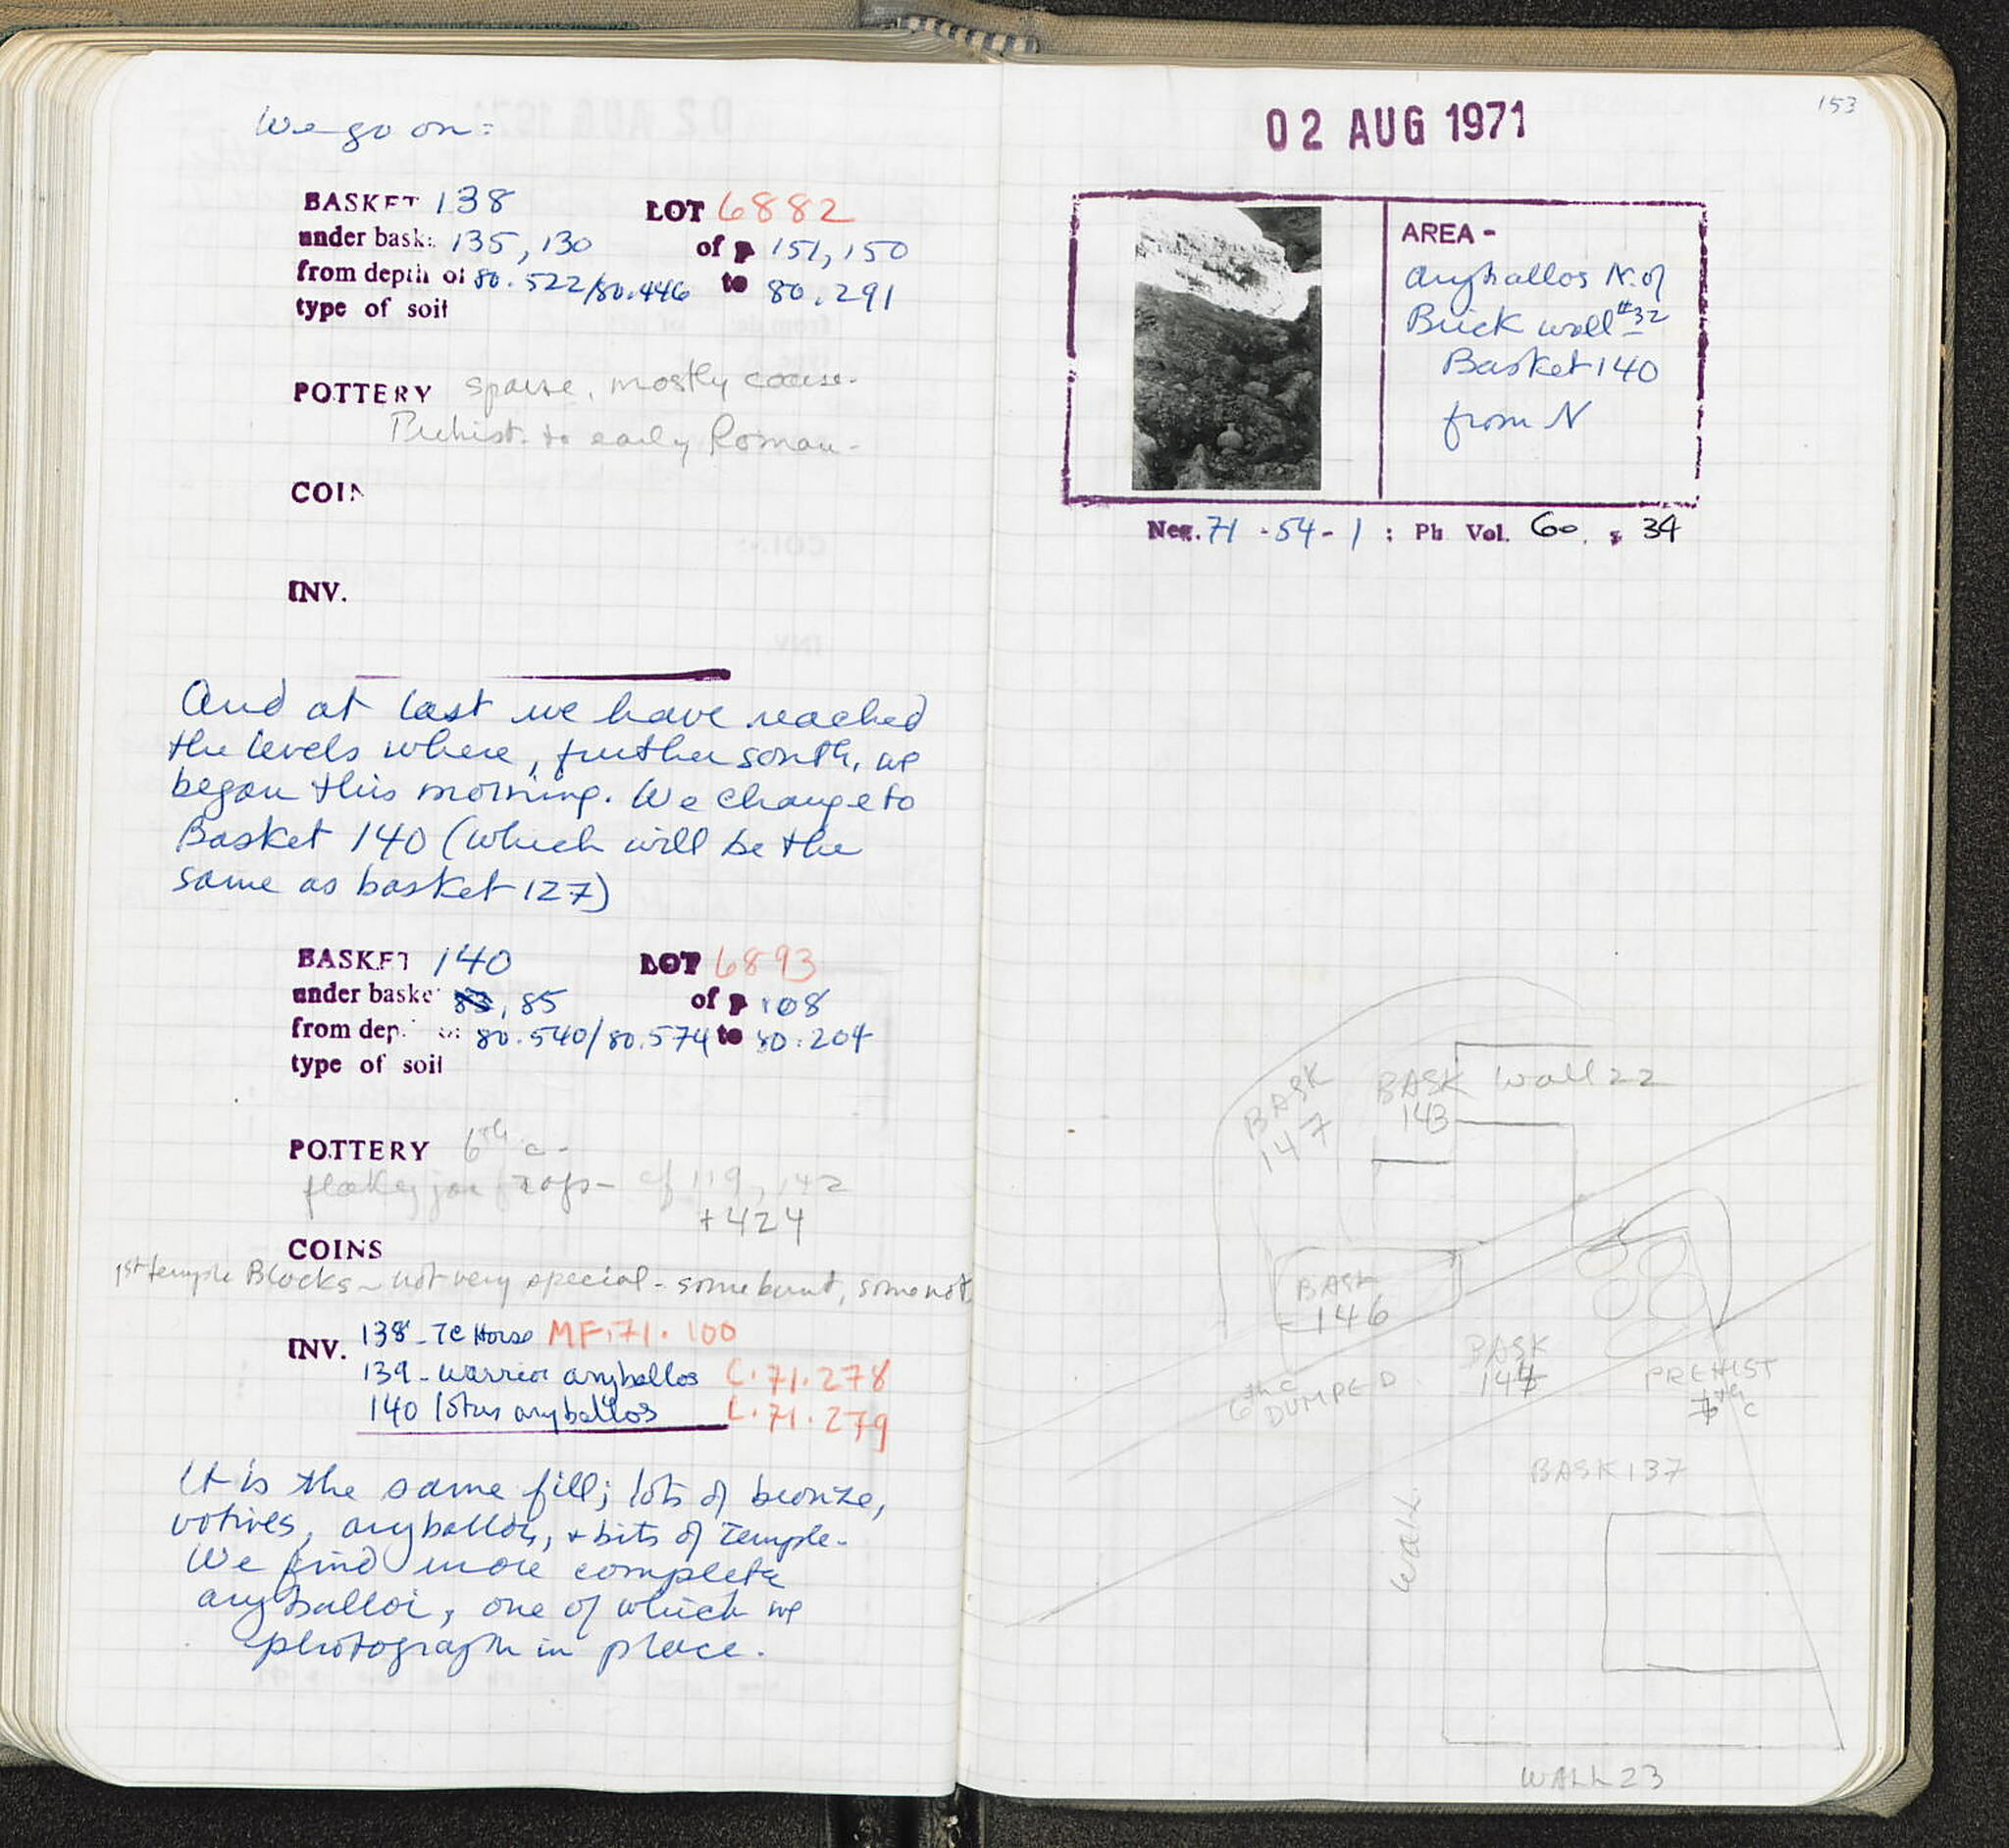 We go on:
BASKET 138 LOT 6882
under bask. 135, 130 of p 151, 150
from depth of 80.522/80.446 to 80.291
type of soil
POTTERY sparse, mostly coarse.
Prehist. to early Roman.
COIN
INV.
And at last we have reached
the levels where, further south, we
began this morning. We change to
Basket 140 (which will be the
same as basket 127)
BASKET 140 LOT 6893
under baske 83, 85 of p 108
from dep. of 80.540/80.574 to 80.204
type of soil
POTTERY 6th c.
flakey jar frags - cf 119, 142
+ 424
COINS
1st temple Blocks - not very special - some burnt, some not.
INV. 138 - TC Horse MF.71.100
139 - warrior aryballos C.71.278
140 lotus aryballos C.71.279
It is the same fill; lots of bronze,
votives, aryballoi, + bits of temple.
We find more complete
aryballoi, one of which we
photograph in place.
153
02 AUG 1971
AREA -
aryballos N. of
Brick wall #32
Basket 140
from N
Neg. 71 - 54 - 1 ; Ph Vol. 60. : 34
BASK
147
BASK
143
Wall 22
BASK
146
6th c
DUMPED
BASK
144
PREHIST
6th c
BASK 137
Walk
WALL 23